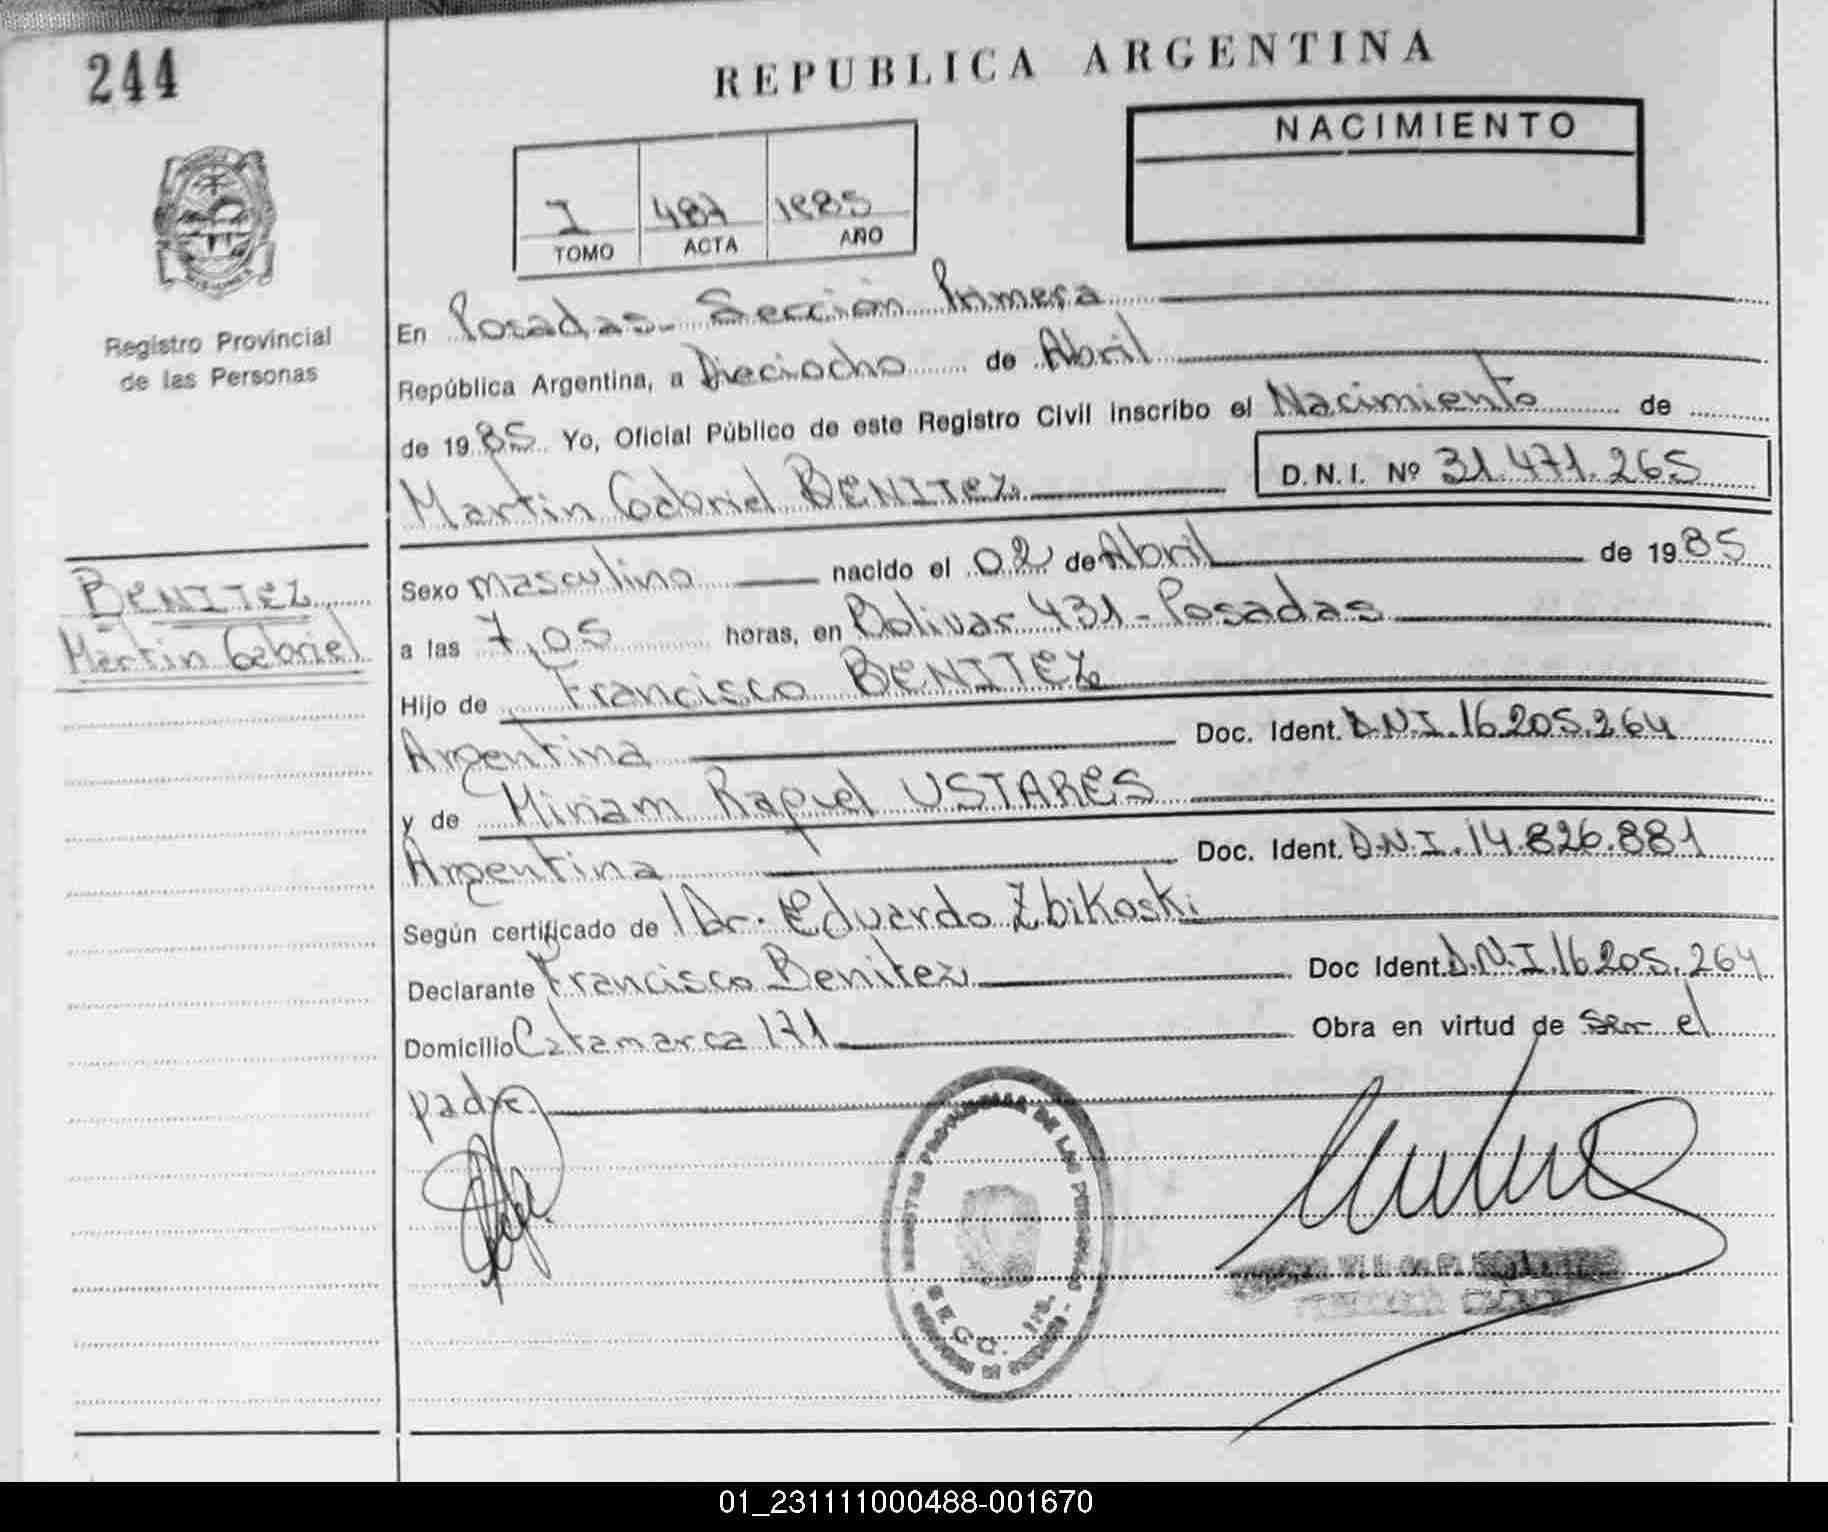 244
REPUBLICA ARGENTINA
NACIMIENTO
I 487 1985
TOMO ACTA AÑO
Registro Provincial
de las Personas
En Posadas - Sección Primera
República Argentina, a Dieciocho de Abril
de 1985 Yo, Oficial Público de este Registro Civil inscribo el Nacimiento de
Martin Gabriel BENITEZ D.N.I. Nº 31.471.265
BENITEZ
Martin Gabriel
Sexo masculino nacido el 02 de Abril de 1985
a las 7,05 horas, en Bolivar 431 - Posadas
Hijo de Francisco BENITEZ
Argentina Doc. Ident. D.N.I. 16.205.264
y de Miriam Raquel USTARES
Argentina Doc. Ident. D.N.I. 14.826.881
Según certificado de Dr. Eduardo Zbikoski
Declarante Francisco Benitez Doc Ident. D.N.I. 16.205.264
Domicilio Catamarca 171 Obra en virtud de ser el
padre.
PROVINCIAL DE LAS PERSONAS
01_231111000488-001670